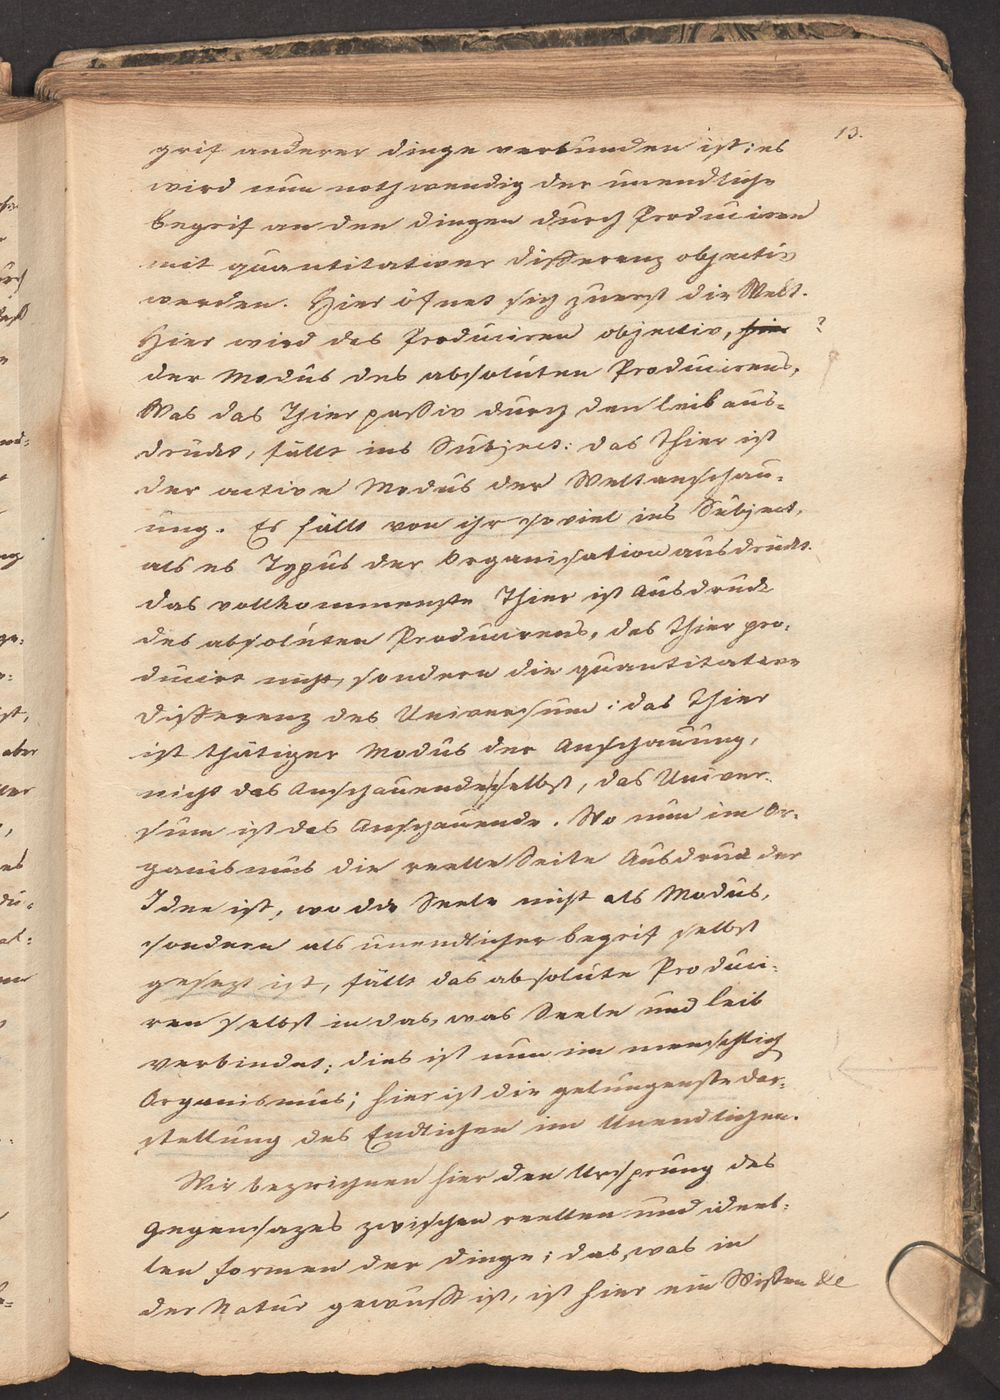 13.
grif anderer dinge verbunden ist; es
wird nun nothwendig der unendliche
begrif an den dingen durch Produciren
mit quantitativer differenz objectiv
werden. Hier öfnet sich zuerst die Welt.
Hier wird das Produciren objectiv, hier ?
der Modus des absoluten Producirens,
Was das Thier passiv durch den leib aus-
drückt, fällt ins Subject: das Thier ist
der active Modus der Weltanschau-
ung. Es fällt von ihr so viel ins Subject,
als es Typus der Organisation ausdrückt.
das vollkommenste Thier ist Ausdruck
des absoluten Producirens, das Thier pro-
ducirt nicht, sondern die quantitative
differenz des Universum: das Thier
ist thätiger Modus der Anschauung,
nicht das Anschauende selbst, das Univer-
sum ist das Anschauende. Wo nun im Or-
ganismus die reelle Seite Ausdruck der
Idee ist, wo die Seele nicht als Modus,
sondern als unendlicher begrif selbst
gesezt ist, fällt das absolute Produci-
ren selbst in das, was Seele und leib
verbindet; dies ist nun im menschlich
Organismus; hier ist die gelungenste dar-
stellung des Endlichen im Unendlichen.
Wir bezeichnen hier den Ursprung des
Gegensazes zwischen reellen und ideel-
len formen der dinge; das, was in
der Natur gewußt ist, ist hier ein Wißen &c